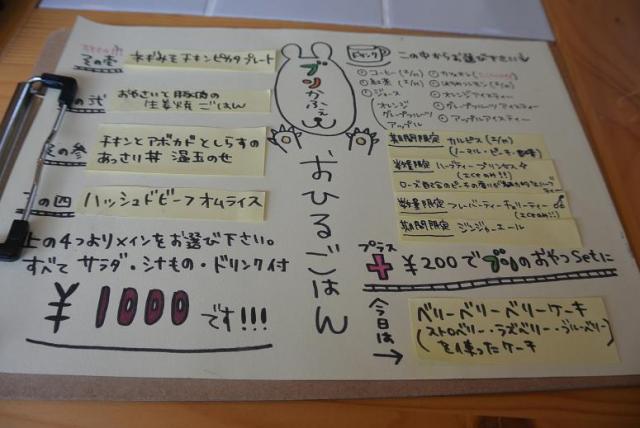 その壱
ネギみそチキンピカタプレート
の弐
おやさいと豚肉の
生姜焼ごはん
の参
チキンとアボカドとしらすの
あっさり丼 温玉のせ
の四
ハッシュドビーフオムライス
上の4つよりメインをお選び下さい。
すべて サラダ・シナもの・ドリンク付
¥1000です!!!
ブンかふぇ
おひるごはん
ドリンク
この中からお選び下さい
コーヒー(H/I)
紅茶(H/I)
ジュース
オレンジ
グレープフルーツ
アップル
オレンジアイスティー
グレープフルーツアイスティー
アップルアイスティー
期間限定 カルピス(H/I)
(ノーマル・ピーチ・
数量限定 ハーブティープリンセス
ローズ
数量限定 フレーバーティーチェリーティー
期間限定 ジンジャーエール
プラス
+¥200でブンのおやつSetに
今日は→
ベリーベリーベリーケーキ
(ストロベリー・ラズベリー・ブルーベリー
を使ったケーキ